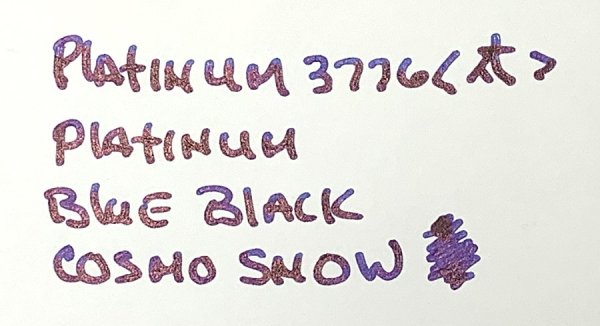 PLATINUM 3776 <太>
PLATINUM
BLUE BLACK
COSMO SNOW